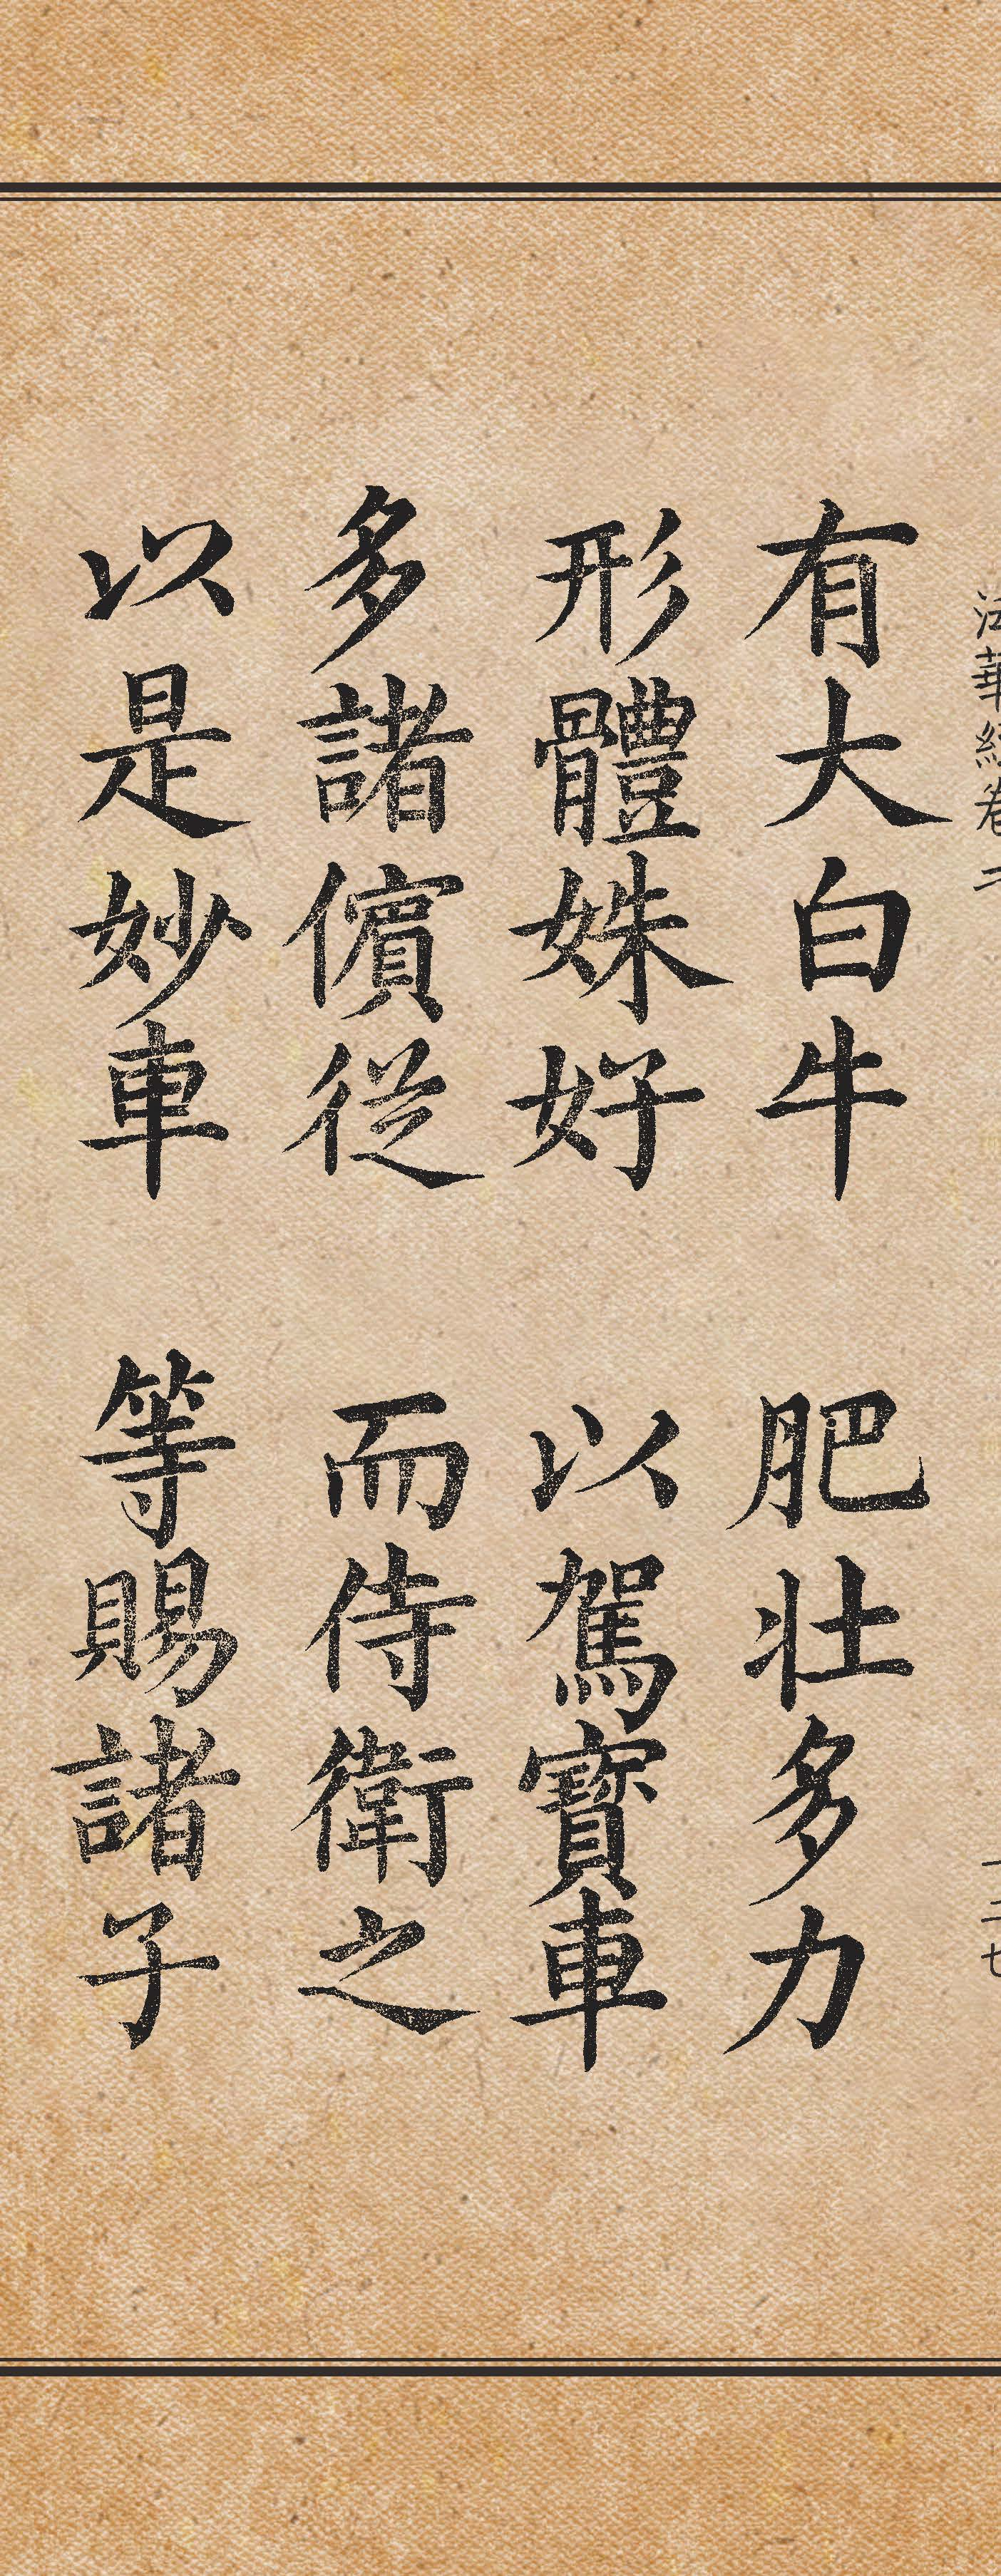 法華經卷二
一二七
有大白牛 肥壯多力
形體姝好 以駕寶車
多諸儐從 而侍衛之
以是妙車 等賜諸子